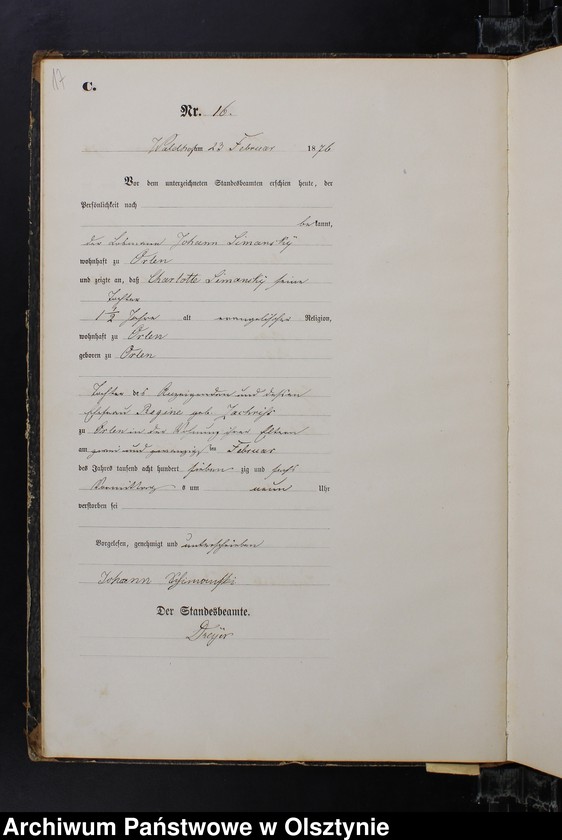 17
C.
Nr. 16.
23 Februar 1876
Vor dem unterzeichneten Standesbeamten erschien heute, der
Persönlichkeit nach
bekannt,
der Johann Simansky
wohnhaft zu Orlen
und zeigte an, daß Charlotte Simansky seine
Tochter
1 1/2 Jahre alt evangelischer Religion,
wohnhaft zu Orlen
geboren zu Orlen
Tochter des Anzeigenden und dessen
Ehefrau Regine geb.
zu Orlen in der Wohnung ihrer Eltern
am zwei und zwanzigsten Februar
des Jahres tausend acht hundert sieben zig und sechs
Vormittags um neun Uhr
verstorben sei
Vorgelesen, genehmigt und unterschrieben
Johann Schimanski
Der Standesbeamte.
Dreÿer
Archiwum Państwowe w Olsztynie